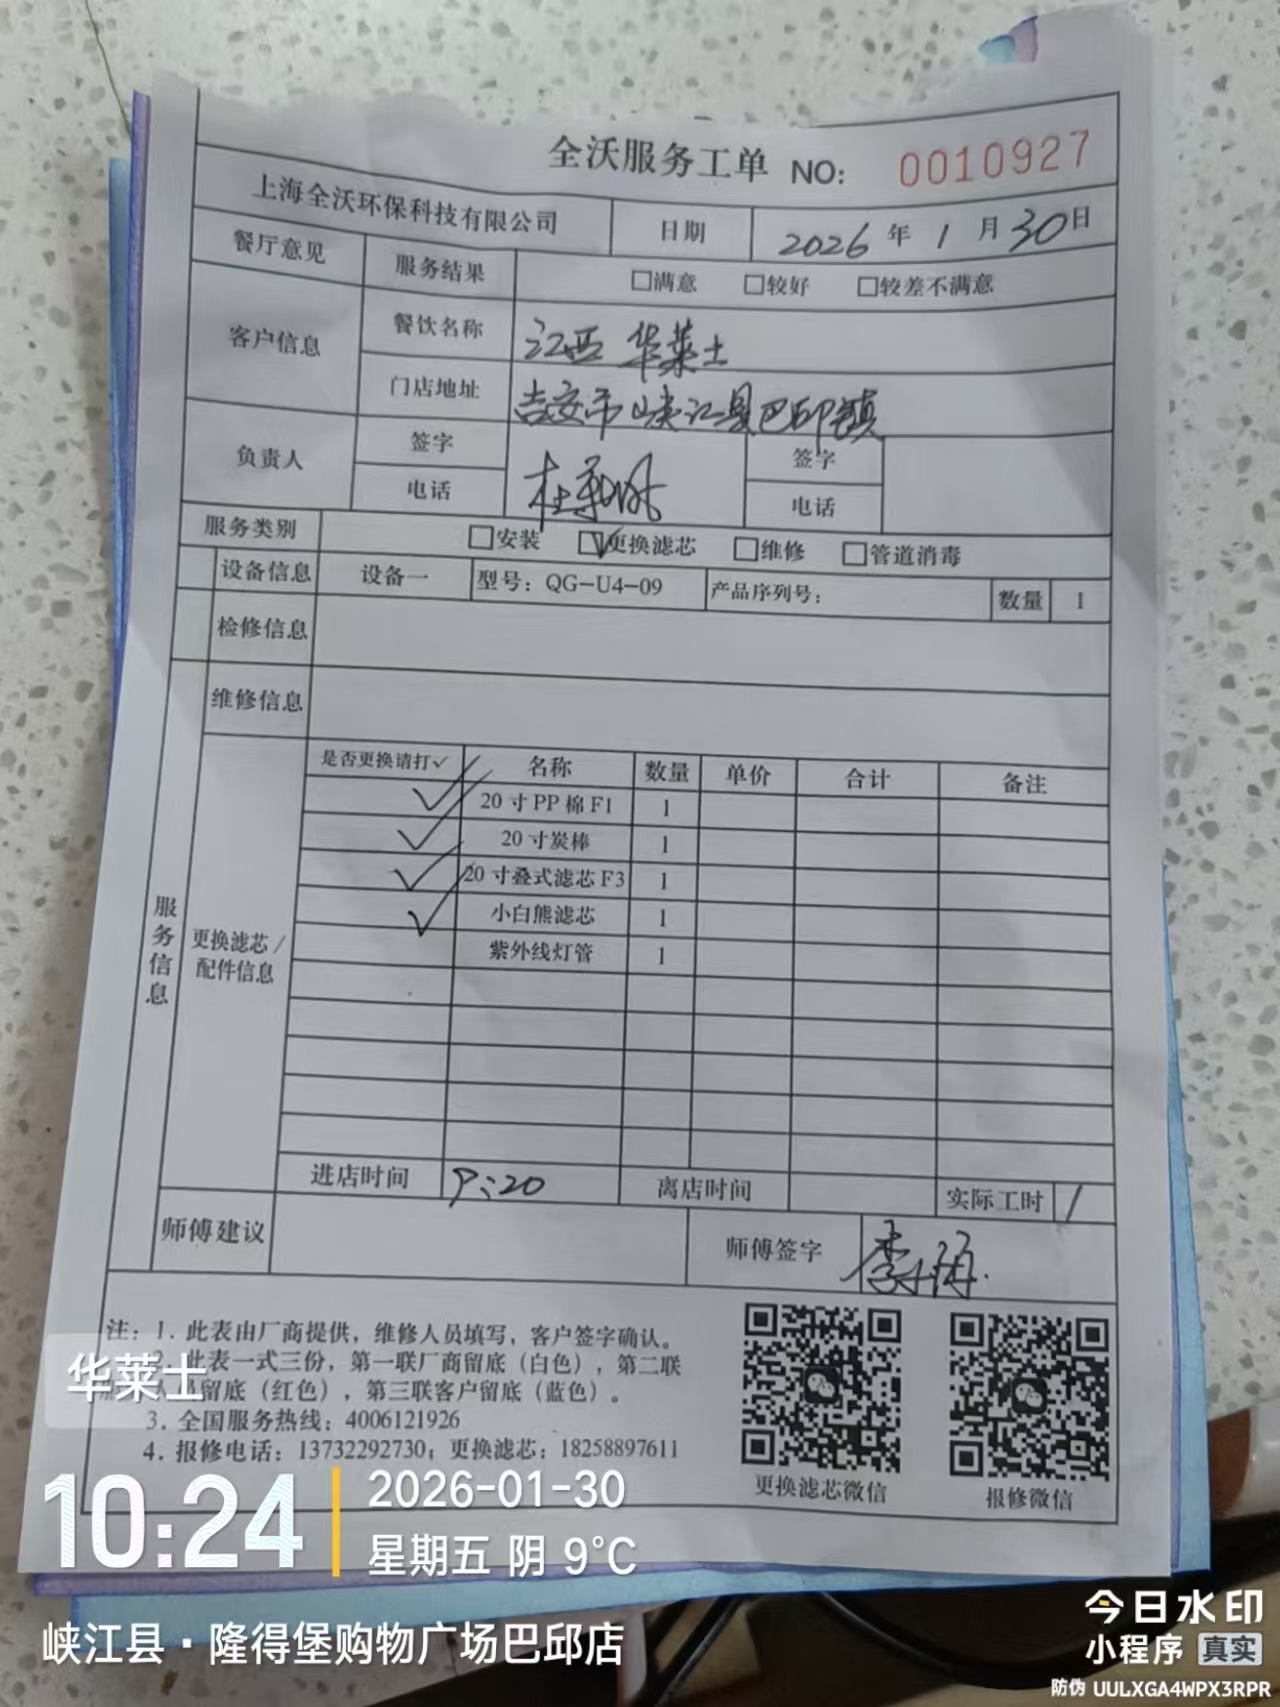 全沃服务工单 NO: 0010927
上海全沃环保科技有限公司 日期 2026年1月30日
餐厅意见 服务结果 □满意 □较好 □较差不满意
客户信息 餐饮名称 江西 华莱士
门店地址 吉安市峡江县巴邱镇
负责人 签字 签字
电话 电话
服务类别 □安装 ☑更换滤芯 □维修 □管道消毒
设备信息 设备一 型号：QG-U4-09 产品序列号： 数量 1
检修信息
维修信息
服务信息
更换滤芯/配件信息
是否更换请打✓ 名称 数量 单价 合计 备注
✓ 20寸PP棉F1 1
✓ 20寸炭棒 1
✓ 20寸叠式滤芯F3 1
✓ 小白熊滤芯 1
紫外线灯管 1
进店时间 9:20 离店时间 实际工时 1
师傅建议 师傅签字
注：1. 此表由厂商提供，维修人员填写，客户签字确认。
2. 此表一式三份，第一联厂商留底（白色），第二联
留底（红色），第三联客户留底（蓝色）。
3. 全国服务热线：4006121926
4. 报修电话：13732292730；更换滤芯：18258897611
更换滤芯微信 报修微信
华莱士
10:24 2026-01-30
星期五 阴 9°C
峡江县·隆得堡购物广场巴邱店
今日水印
小程序 真实
防伪 UULXGA4WPX3RPR